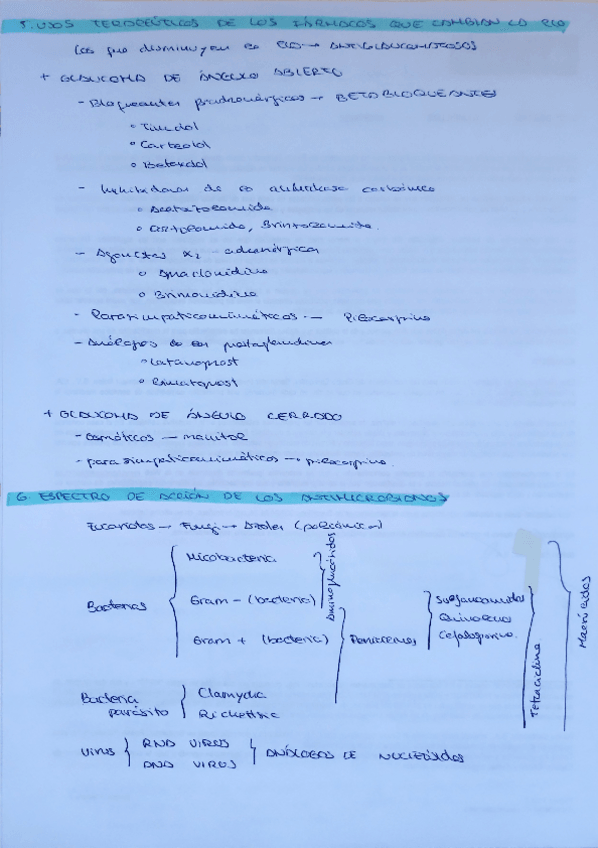 5. USOS TERAPÉUTICOS DE LOS FÁRMACOS QUE CAMBIAN LA PIO
Los que disminuyen la PIO → ANTIGLAUCOMATOSOS
+ GLAUCOMA DE ÁNGULO ABIERTO
- Bloqueantes β-adrenérgicos → BETABLOQUEANTES
• Timolol
• Carteolol
• Betaxolol
- Inhibidores de la anhidrasa carbónica
• Acetazolamida
• Dorzolamida, Brinzolamida.
- Agonistas α2-adrenérgica
• Apraclonidina
• Brimonidina
- Parasimpaticomiméticos — Pilocarpina
- Análogos de las prostaglandinas
• Latanoprost
• Bimatoprost
+ GLAUCOMA DE ÁNGULO CERRADO
- osmóticos — manitol
- parasimpaticomiméticos → pilocarpina.
6. ESPECTRO DE ACCIÓN DE LOS ANTIMICROBIANOS
Eucariotas → Fungi → Azoles
Bacterias
Micobacteria
Gram - (bacteria)
Gram + (bacteria)
Aminoglucósidos
Penicilinas
Sulfonamidas
Quinolonas
Cefalosporina.
Tetraciclina
Macrólidos
Bacteria parásito
Clamydia
Rickettsia
Virus
RNA VIRUS
DNA VIRUS
ANÁLOGOS DE NUCLEÓSIDOS